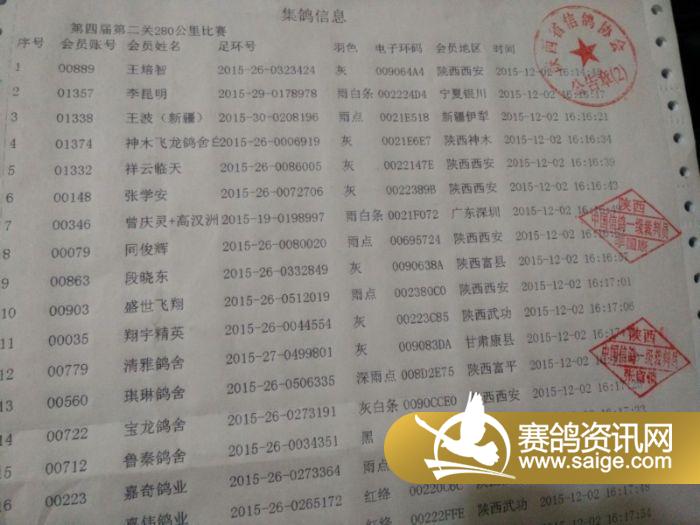 集鸽信息
第四届第二关280公里比赛
序号 会员账号 会员姓名 足环号 羽色 电子环码 会员地区 时间
1 00889 王培智 2015-26-0323424 灰 009064A4 陕西西安 2015-12-02 16:14:
2 01357 李昆明 2015-29-0178978 雨白条 002224D4 宁夏银川 2015-12-02 16:16:17
3 01338 王波（新疆） 2015-30-0208196 雨点 0021E518 新疆伊犁 2015-12-02 16:16:21
4 01374 神木飞龙鸽舍 2015-26-0006919 灰 0021E6E7 陕西神木 2015-12-02 16:16:34
5 01332 祥云临天 2015-26-0086005 灰 0022147E 陕西西安 2015-12-02 16:16:40
6 00148 张学安 2015-26-0072706 灰 0022389B 陕西西安 2015-12-02 16:16:43
7 00346 曾庆灵+高汉洲 2015-19-0198997 雨白条 0021F072 广东深圳 2015-12-02 16:16:
8 00079 同俊辉 2015-26-0080020 雨点 00695724 陕西西安 2015-12-02 16:16:
9 00863 段晓东 2015-26-0332849 灰 0090638A 陕西富县 2015-12-02 16:16:57
10 00903 盛世飞翔 2015-26-0512019 雨点 002380C0 陕西西安 2015-12-02 16:17:01
11 00035 翔宇精英 2015-26-0044554 灰 00223C85 陕西武功 2015-12-02 16:17:06
12 00779 清雅鸽舍 2015-27-0499801 灰 009083DA 甘肃康县 2015-12-02
13 00560 琪琳鸽舍 2015-26-0506335 深雨点 008D2E75 陕西富平 2015-12-02 16:17:
14 00722 宝龙鸽舍 2015-26-0273191 灰白条 0090CCE0 陕西西安 2015-12-02 16:17:23
15 00712 鲁秦鸽舍 2015-26-0034351 黑
16 00223 嘉奇鸽业 2015-26-0273364 雨点
嘉伟鸽业 2015-26-0265172 红绛 00220C6C 2015-12-02 16:17:48
红绛 00222FFE 陕西武功 2015-12-02 16:17:54
陕西省信鸽协会
公告章(2)
陕西
中国信鸽一级裁判员
陕西
中国信鸽一级裁判员
赛鸽资讯网
www.saige.com